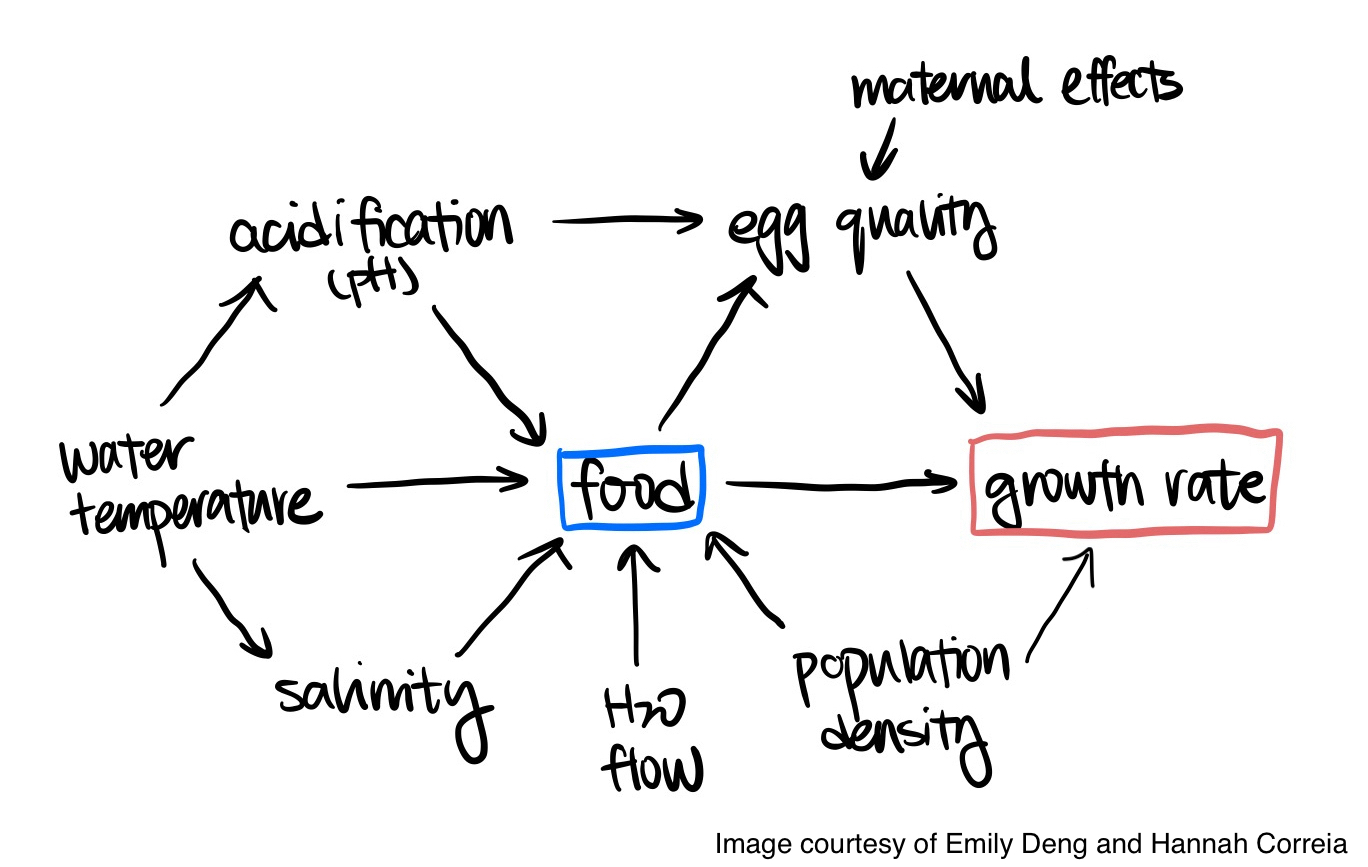 maternal effects
acidification
(pH)
egg quality
water
temperature
food
growth rate
salinity
H2O
flow
population
density
Image courtesy of Emily Deng and Hannah Correia